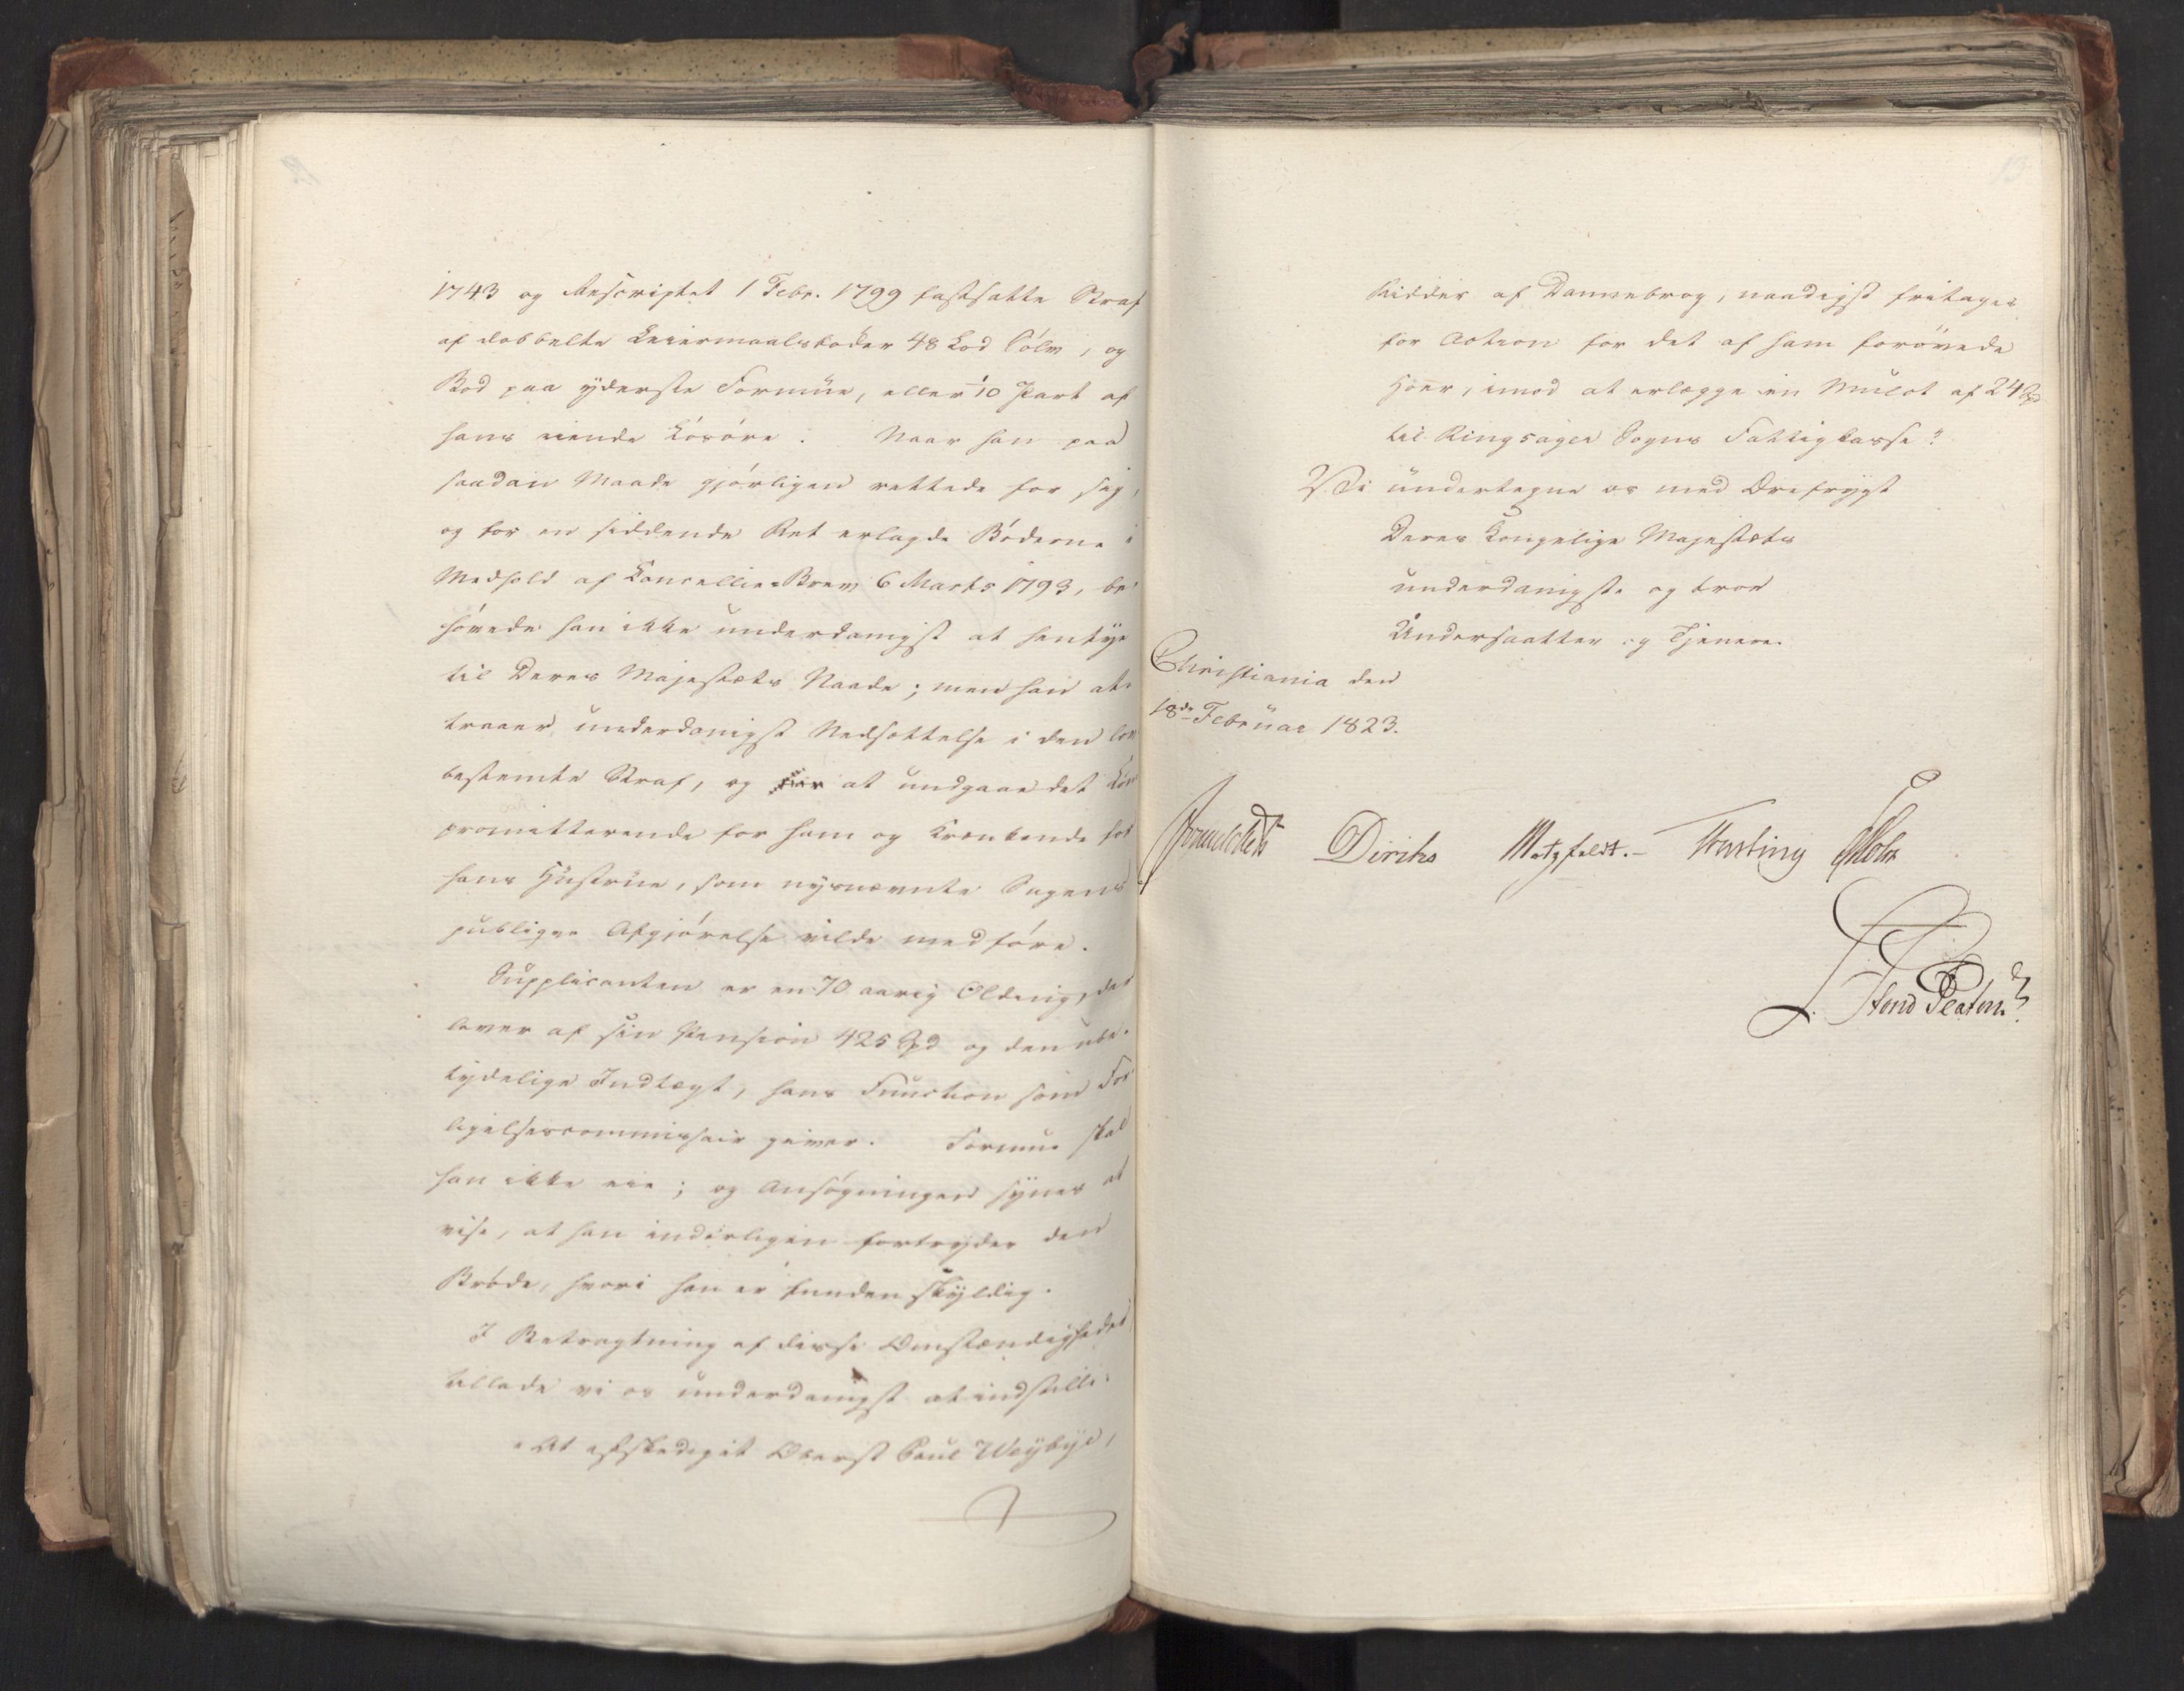 1743 og Rescriptet 1 Febr. 1799 fastsatte Straf
af dobbelte Leiermaalsbøder 48 Lod Sölv, og
Bod paa yderste Formüe, eller 1/10 Part af
hans eiende Losöre. Naar han paa
saadan Maade gjörligen rettede for sig,
og for en siddende Ret erlagde Böderne i
Medhold af Cancellie-Brev 6 Marts 1793, be-
hövede han ikke underdanigst at hentye
til Deres Majestæts Naade; men han at-
traaer underdanigst Nedsættelse i den lov
bestemte Straf, og at undgaae det Com
promitterende for ham og Krænkende for
hans Hustrue, som nysnævnte Sagens
publique Afgjörelse vilde medföre.
Supplicanten er en 70 aarig Olding, der
lever af sin Pension 425 Spd og den ube-
tydelige Indtægt, hans Function som For
ligelsescommissair giver. Formue skal
han ikke eie; og Ansögningen synes at
vise, at han inderligen fortryder den
Bröde, hvori han er funden skyldig.
I Betragtning af disse Omstændigheder
tillade vi os underdanigst at indstille:
"At afskediget Oberst Paul Weybye,
13
Ridder af Dannebrog, naadigst fritages
for Action for det af ham forövede
Hoer, imod at erlægge en Mulct af 24 Spd
til Ringsager Sogns Fattigkasse"
Vi undertegne os med Ærefrygt
Deres Kongelige Majestæts
underdanigste og troe
Undersaatter og Tjenere.
Christiania den
18de Februar 1823.
Diriks Motzfeldt. Fasting Holst